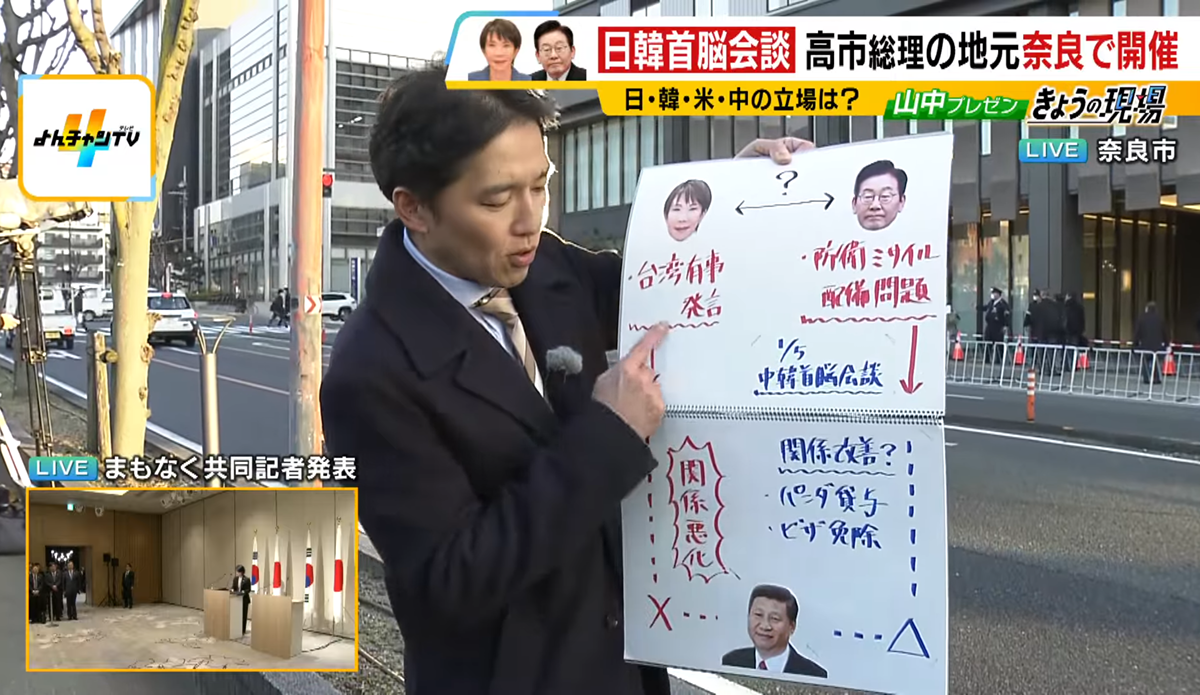 日韓首脳会談 高市総理の地元奈良で開催
日・韓・米・中の立場は?
山中プレゼン きょうの現場
LIVE 奈良市
よんチャンTV
テレビ
4
?
・台湾有事
発言
・防衛ミサイル
配備問題
1/5
中韓首脳会談
関係悪化
関係改善?
・パンダ貸与
・ビザ免除
X
△
LIVE まもなく共同記者発表